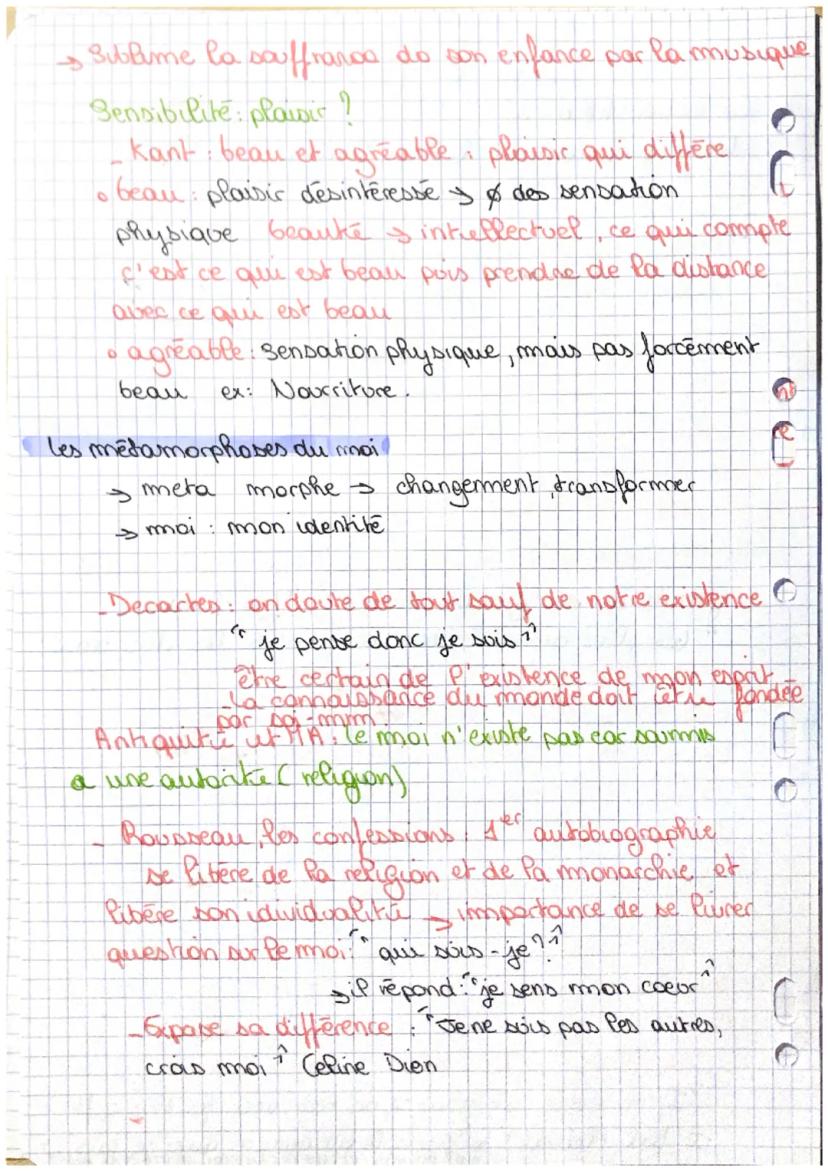 → Sublime la souffrance de son enfance par la musique
Sensibilité : plaisir ?
- Kant : beau et agréable : plaisir qui diffère
• beau : plaisir désintéressé → ∅ des sensation
physique beauté → intellectuel, ce qui compte
c'est ce qui est beau puis prendre de la distance
avec ce qui est beau
• agréable : sensation physique, mais pas forcément
beau ex : Nourriture.
les métamorphoses du moi
→ meta morphe → changement, transformer
→ moi : mon identité
- Decartes : on doute de tout sauf de notre existence
"je pense donc je suis"
être certain de l'existence de mon esprit
- la connaissance du monde doit être fondée
par soi-mm
Antiquité et MA : le moi n'existe pas car soumis
a une autorité ( religion)
- Rousseau, les confessions : 1er autobiographie
se libère de la religion et de la monarchie et
libère son idividualité → importance de se livrer
question sur le moi : "qui suis-je ?"
→ il répond : "je sens mon coeur"
- Expose sa différence : "Je ne suis pas les autres,
crois moi" Celine Dion